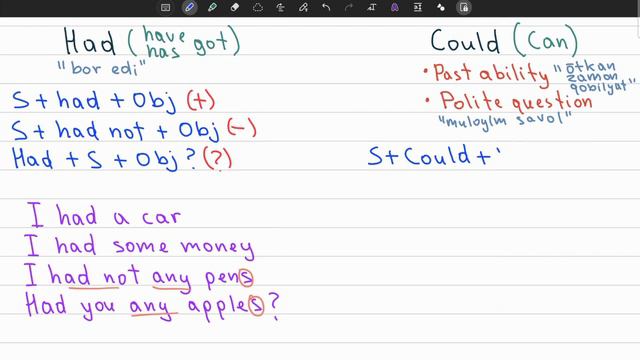 Had (have has got)
"bor edi"
S + had + Obj (+)
S + had not + Obj (-)
Had + S + Obj? (?)
I had a car
I had some money
I had not any pens
Had you any apples?
Could (Can)
• Past ability "ōtkan zamon qobilyat"
• Polite question
"muloylm savol"
S + Could +